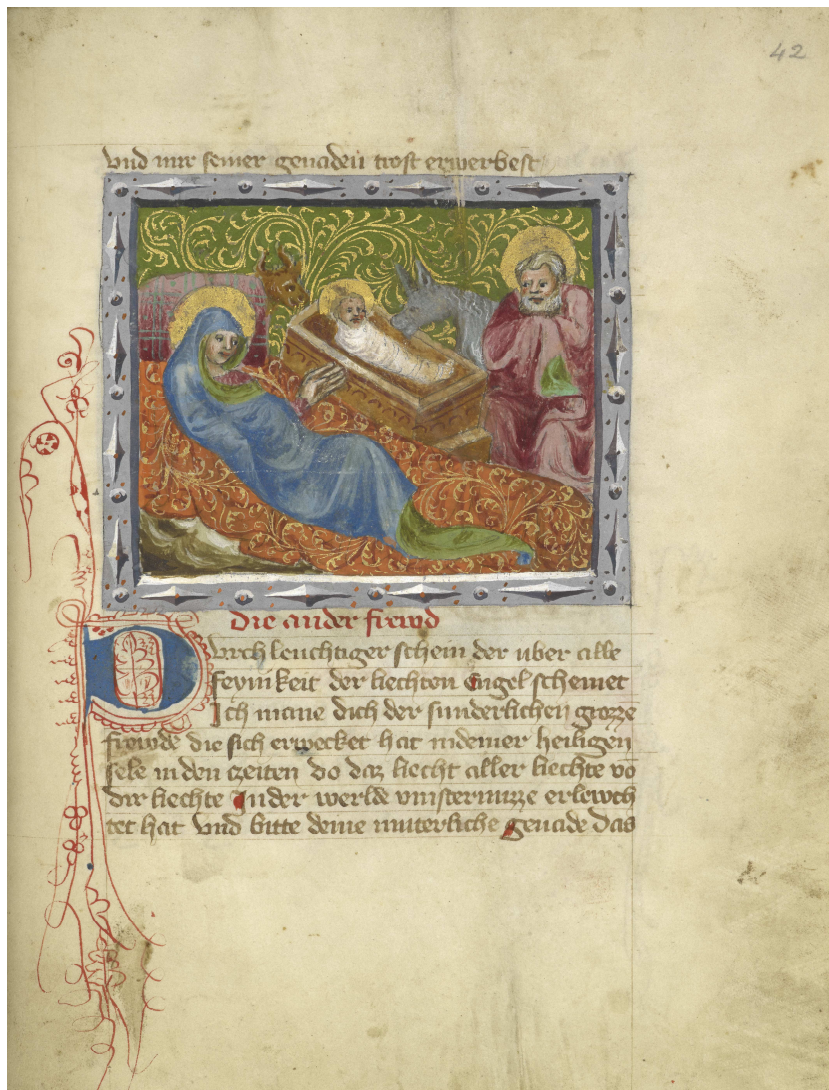 42
vnd mir seiner genaden trost erwerbest
Die ander frewd
Durch leuchtiger schein der uber alle
feynikeit der liechten Engel scheinet
Ich mane dich der sunderlichen grozze
frewde die sich erwecket hat indeiner heiligen
sele in den czeiten do daz liecht aller liechte vō
dir liechte In der werlde vinsternuzze erlewch
tet hat vnd bitte deine muterliche genade Das